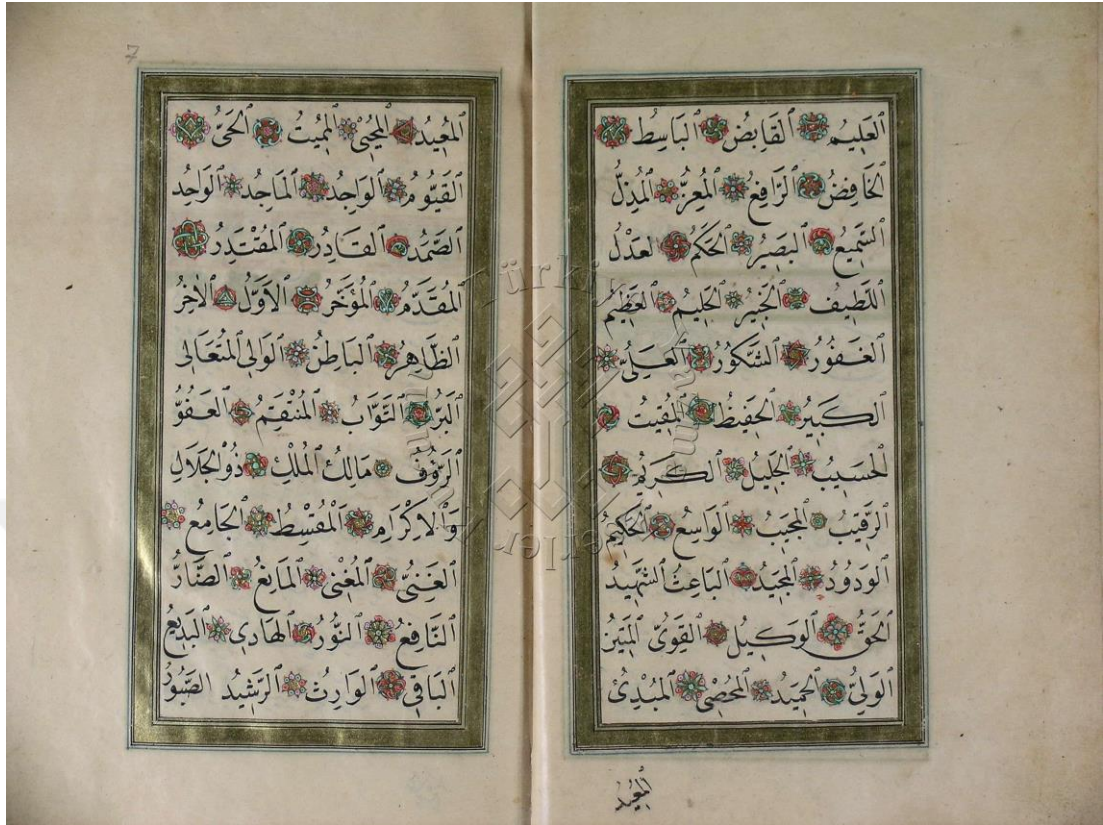 اَلْعَلِيمُ اَلْقَابِضُ اَلْبَاسِطُ
اَلْخَافِضُ اَلرَّافِعُ اَلْمُعِزُّ اَلْمُذِلُّ
اَلسَّمِيعُ اَلْبَصِيرُ اَلْحَكَمُ اَلْعَدْلُ
اَللَّطِيفُ اَلْخَبِيرُ اَلْحَلِيمُ اَلْعَظِيمُ
اَلْغَفُورُ اَلشَّكُورُ اَلْعَلِيُّ
اَلْكَبِيرُ اَلْحَفِيظُ اَلْمُقِيتُ
اَلْحَسِيبُ اَلْجَلِيلُ اَلْكَرِيمُ
اَلرَّقِيبُ اَلْمُجِيبُ اَلْوَاسِعُ اَلْحَكِيمُ
اَلْوَدُودُ اَلْمَجِيدُ اَلْبَاعِثُ اَلشَّهِيدُ
اَلْحَقُّ اَلْوَكِيلُ اَلْقَوِيُّ اَلْمَتِينُ
اَلْوَلِيُّ اَلْحَمِيدُ اَلْمُحْصِي اَلْمُبْدِئُ
اَلْمُعِيدُ
7
اَلْمُعِيدُ اَلْمُحْيِي اَلْمُمِيتُ اَلْحَيُّ
اَلْقَيُّومُ اَلْوَاجِدُ اَلْمَاجِدُ اَلْوَاحِدُ
اَلصَّمَدُ اَلْقَادِرُ اَلْمُقْتَدِرُ
اَلْمُقَدِّمُ اَلْمُؤَخِّرُ اَلْاَوَّلُ اَلْاٰخِرُ
اَلظَّاهِرُ اَلْبَاطِنُ اَلْوَالِى اَلْمُتَعَالِى
اَلْبَرُّ اَلتَّوَّابُ اَلْمُنْتَقِمُ اَلْعَفُوُّ
اَلرَّؤُفُ مَالِكُ الْمُلْكِ ذُو الْجَلَالِ
وَالْاِكْرَامِ اَلْمُقْسِطُ اَلْجَامِعُ
اَلْغَنِيُّ اَلْمُغْنِى اَلْمَانِعُ اَلضَّارُّ
اَلنَّافِعُ اَلنُّورُ اَلْهَادِى اَلْبَدِيعُ
اَلْبَاقِي اَلْوَارِثُ اَلرَّشِيدُ اَلصَّبُورُ